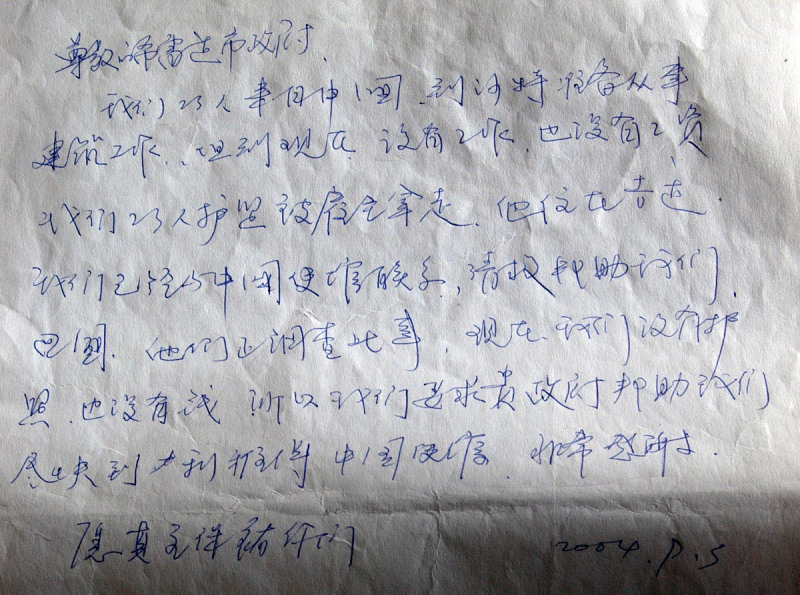 尊敬的布雷达市政府.
我们23人来自中国,到沙特准备从事
建筑工作,但到现在没有工作,也没有工资
我们23人护照被雇主拿走.他住在吉达.
我们已经与中国使馆联系,请救帮助我们.
回国.他们正调查此事,现在我们没有护
照,也没有钱 所以我们要求贵政府帮助我们
尽快到 中国使馆,非常感谢.
愿真主保佑你们 2004.9.5